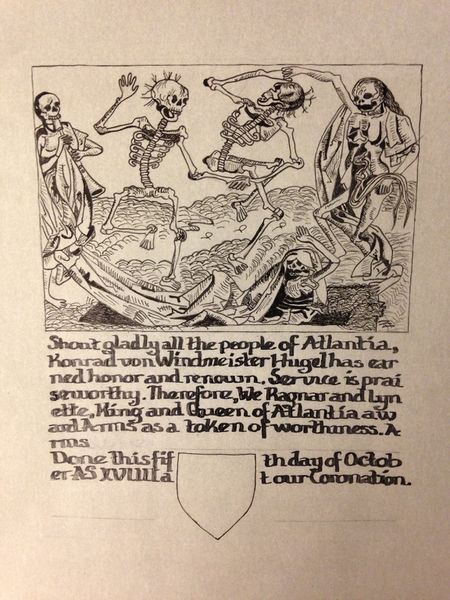 Shout gladly all the people of Atlantia,
Konrad von Windmeister Hugel has ear
ned honor and renown. Service is prai
seworthy. Therefore, We Ragnar and Lyn
ette, King and Queen of Atlantia aw
ard Arms as a token of worthiness. A
rms
Done this fif th day of Octob
er AS XVIII a t our Coronation.